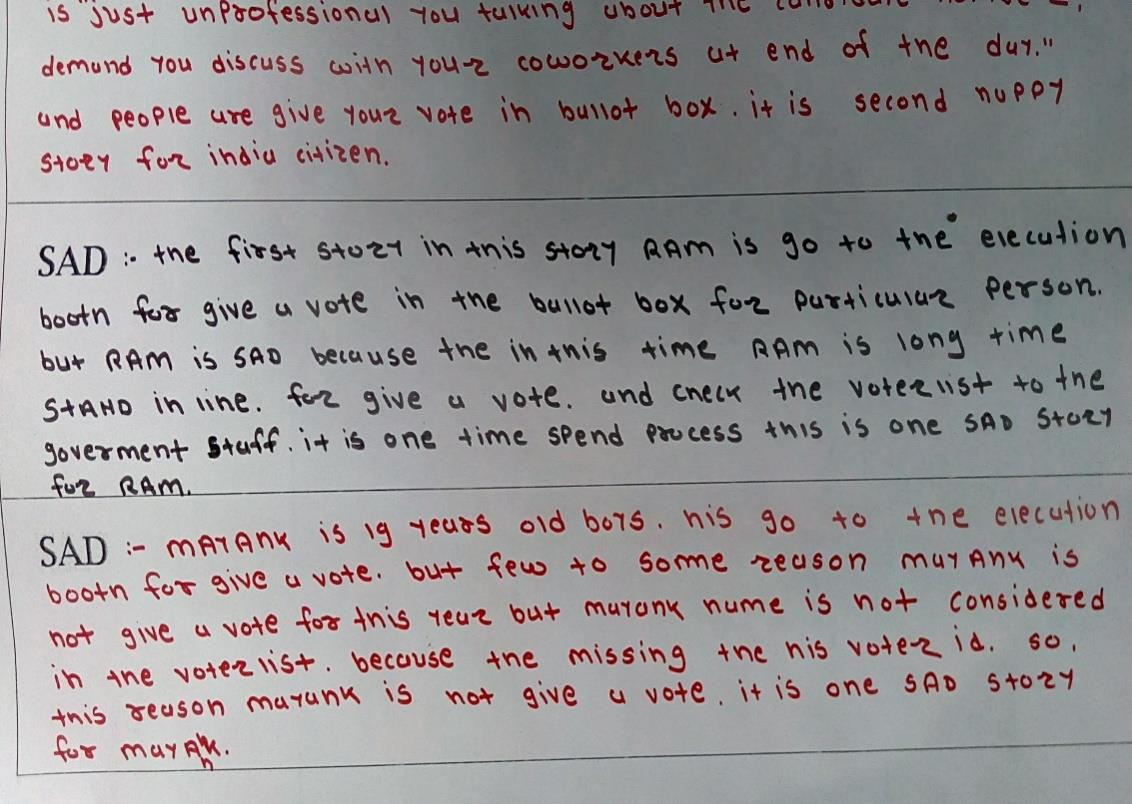 is "just unprofessional you talking about the
demand you discuss with your coworkers at end of the day."
and people are give your vote in ballot box. it is second happy
story for india citizen.
SAD :- the first story in this story RAM is go to the elecution
booth for give a vote in the ballot box for particular person.
but RAM is SAD because the in this time RAM is long time
STAND in line. for give a vote. and check the voter list to the
goverment staff. it is one time spend process this is one SAD story
for RAM.
SAD :- MAYANK is 19 years old boys. his go to the elecution
booth for give a vote. but few to some reason mayAnk is
not give a vote for this year but mayank name is not considered
in the voter list. because the missing the his voter id. so,
this reason mayank is not give a vote. it is one SAD story
for mayAnk.